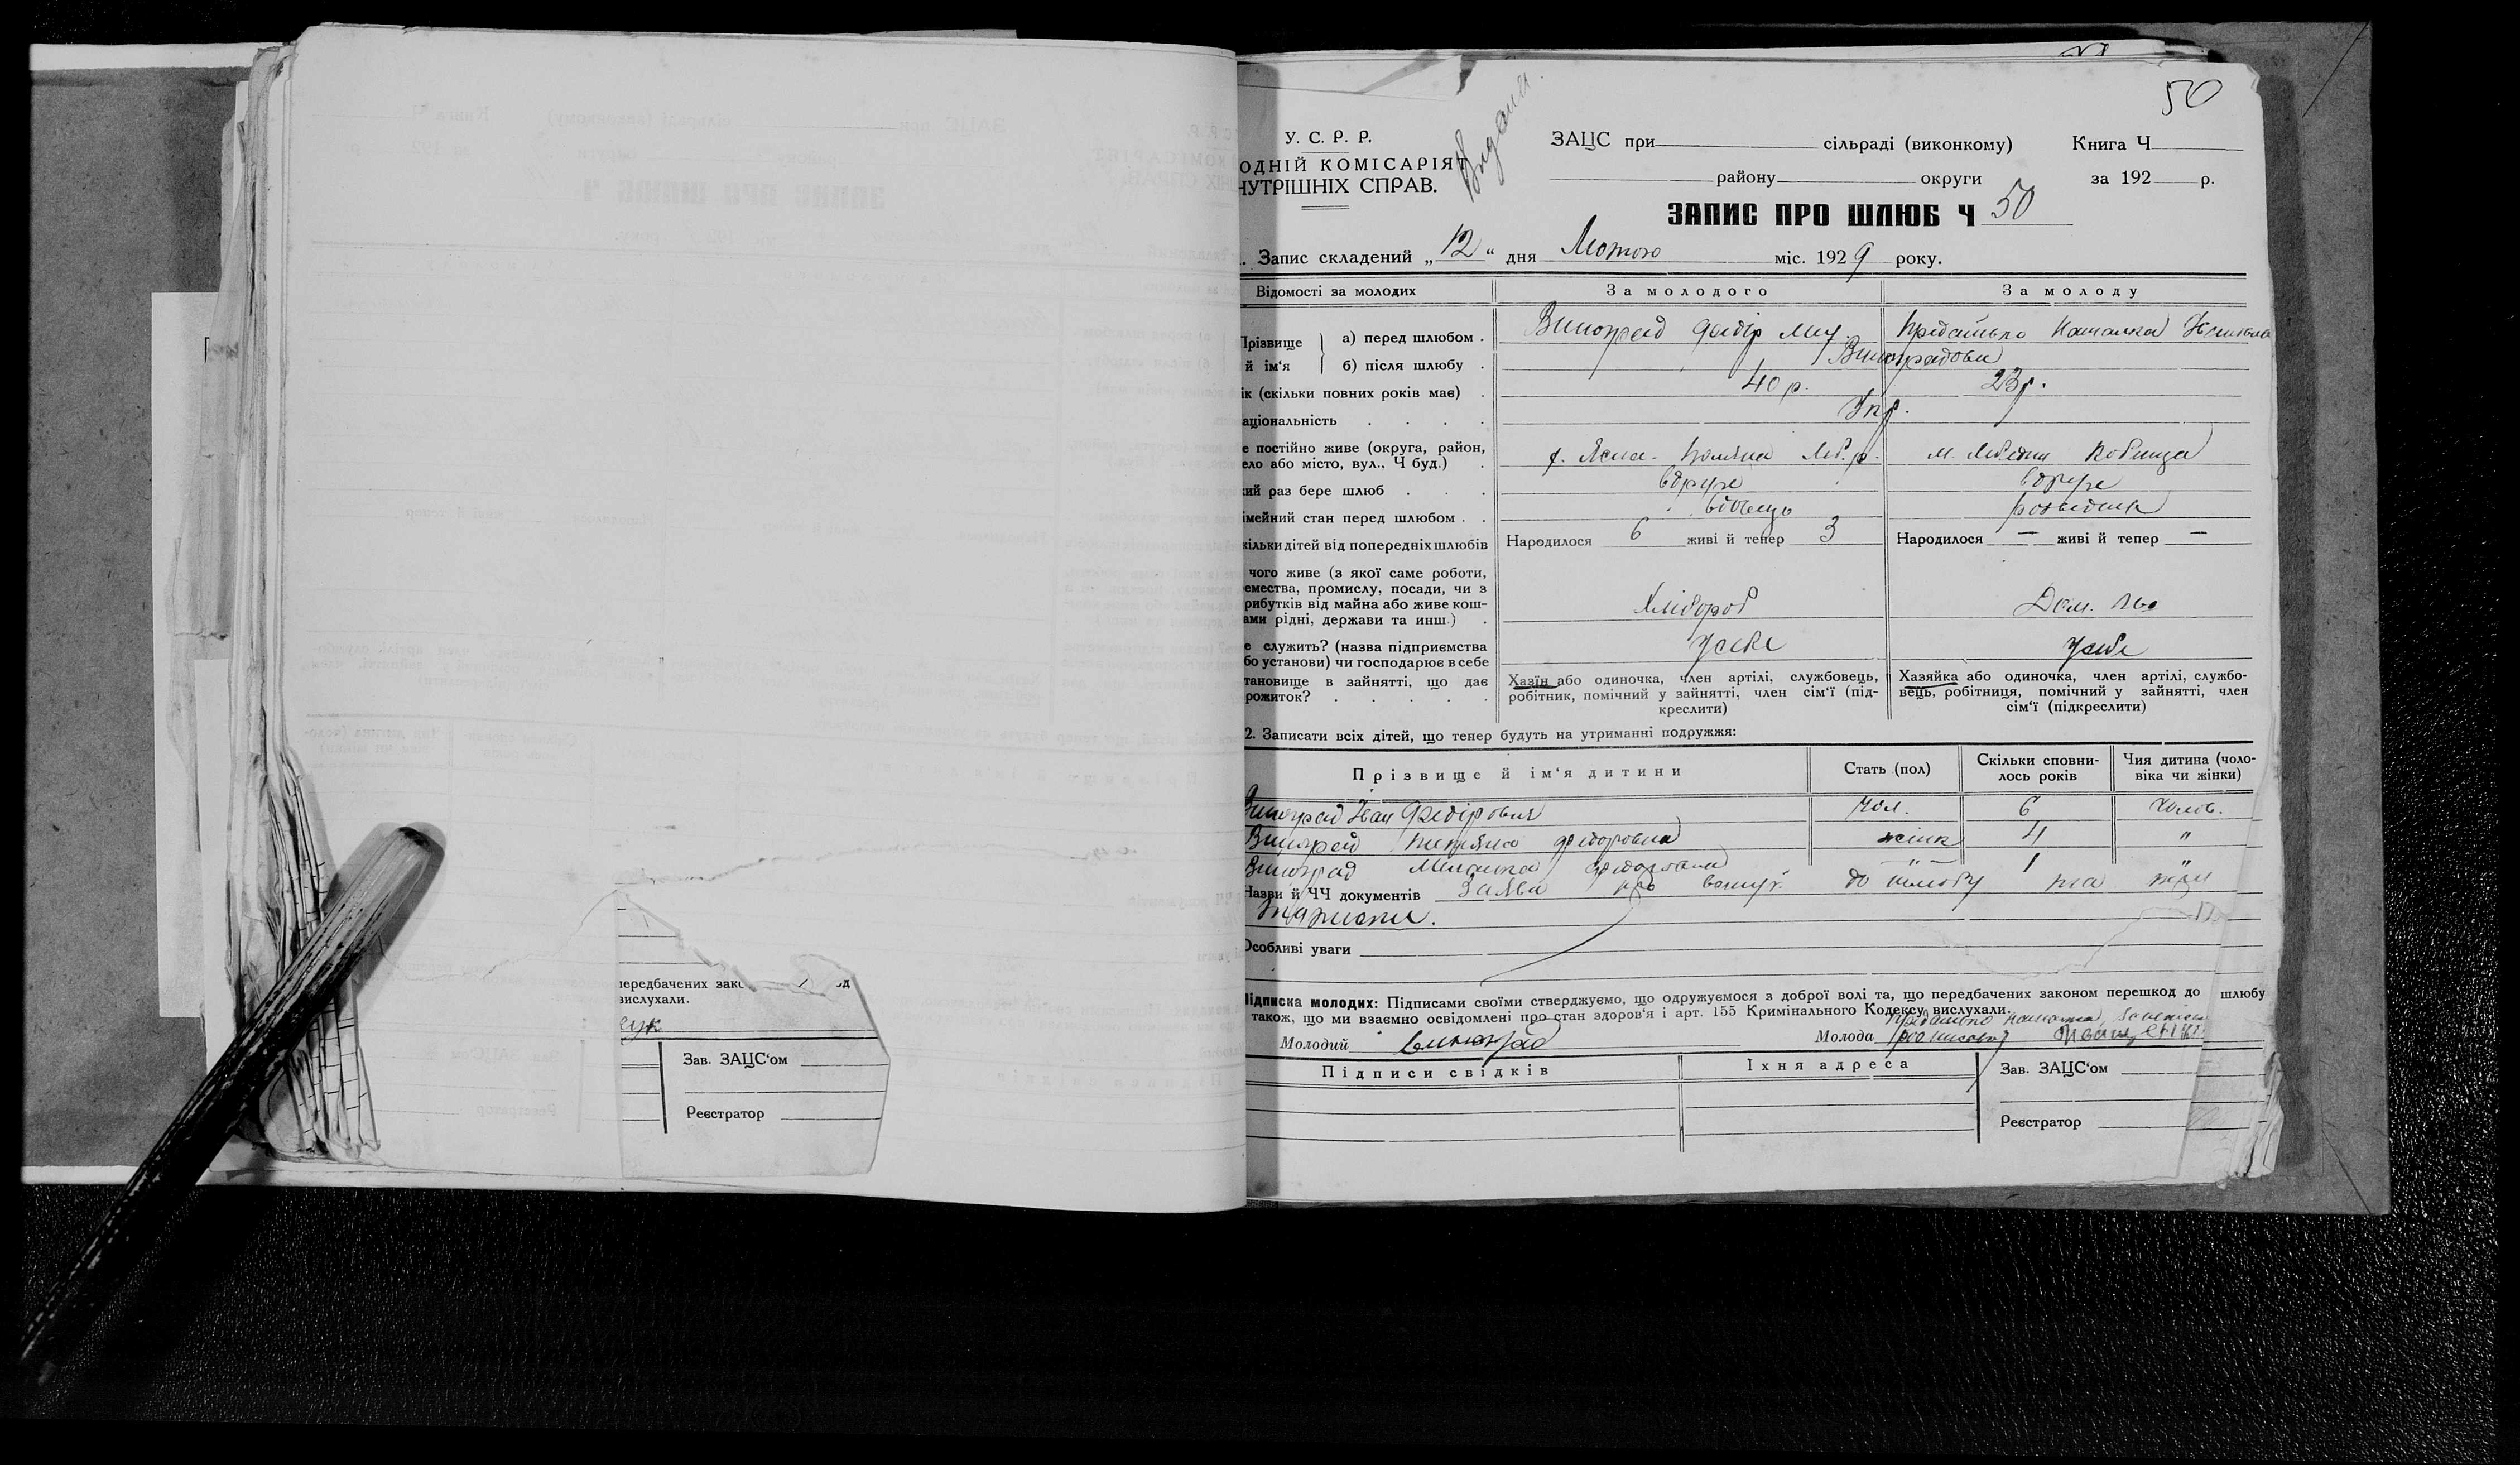 50
У. С. Р. Р.
ОДНІЙ КОМІСАРІЯТ
НУТРІШНІХ СПРАВ.
Видани.
ЗАЦС при сільраді (виконкому) Книга Ч
району округи за 192 р.
ЗАПИС ПРО ШЛЮБ Ч 50
. Запис складений „12“ дня Лютого міс. 1929 року.
Відомості за молодих За молодого За молоду
Прізвище й ім‘я а) перед шлюбом . Виноград Федір
б) після шлюбу . Виноградови
ік (скільки повних років має) . 40 р. 23 р.
аціональність . . . . Укр.
е постійно живе (округа, район,
ело або місто, вул., Ч буд.) . х. Ясна-Поляна Леб. р. м. Лебедин Кобища
ий раз бере шлюб . . . вдруге вдруге
імейний стан перед шлюбом . . вдовець розведена
кільки дітей від попередніх шлюбів Народилося 6 живі й тепер 3 Народилося — живі й тепер —
чого живе (з якої саме роботи,
емества, промислу, посади, чи з
рибутків від майна або живе кош-
ами рідні, держави та инш.) . Хлібороб Дом.
е служить? (назва підприємства
бо установи) чи господарює в себе У себе У себе
тановище в зайнятті, що дає
рожиток? . . . . .
Хазїн або одиночка, член артілі, службовець,
робітник, помічний у зайнятті, член сім‘ї (під-
креслити)
Хазяйка або одиночка, член артілі, службо-
вець, робітниця, помічний у зайнятті, член
сім‘ї (підкреслити)
2. Записати всіх дітей, що тепер будуть на утриманні подружжя:
Прізвище й ім‘я дитини Стать (пол) Скільки сповни-
лось років Чия дитина (чоло-
віка чи жінки)
Виноград Іван Федірович Чол. 6 Чолов.
Виноград Федоровна жінк 4 "
Виноград Федоровна " 1 "
Назви й ЧЧ документів Заява про вступ до шлюбу та
Особливі уваги
Підписка молодих: Підписами своїми стверджуємо, що одружуємося з доброї волі та, що передбачених законом перешкод до шлюбу
також, що ми взаємно освідомлені про стан здоров‘я і арт. 155 Кримінального Кодексу вислухали.
Молодий Виноград Молода
Підписи свідків Їхня адреса Зав. ЗАЦС‘ом
Реєстратор
передбачених зако
вислухали.
Зав. ЗАЦС‘ом
Реєстратор